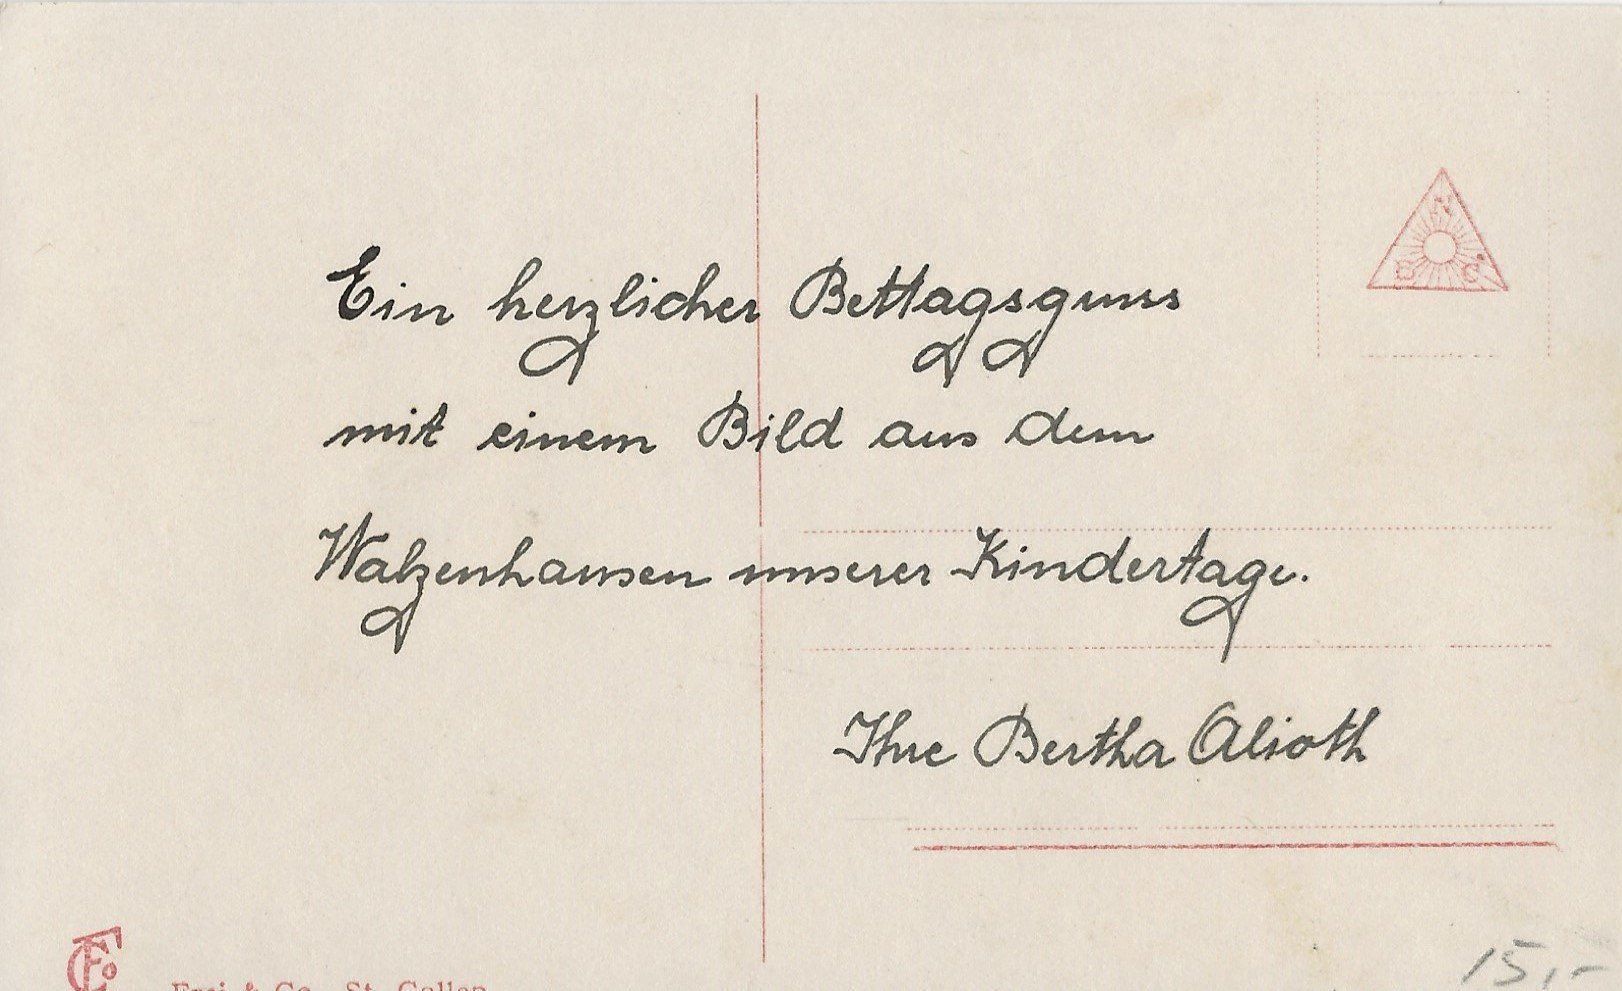 Ein herzlicher Bettagsgruss
mit einem Bild aus dem
Walzenhausen unserer Kindertage.
Ihre Bertha Alioth
& Co., St. Gallen
15,-